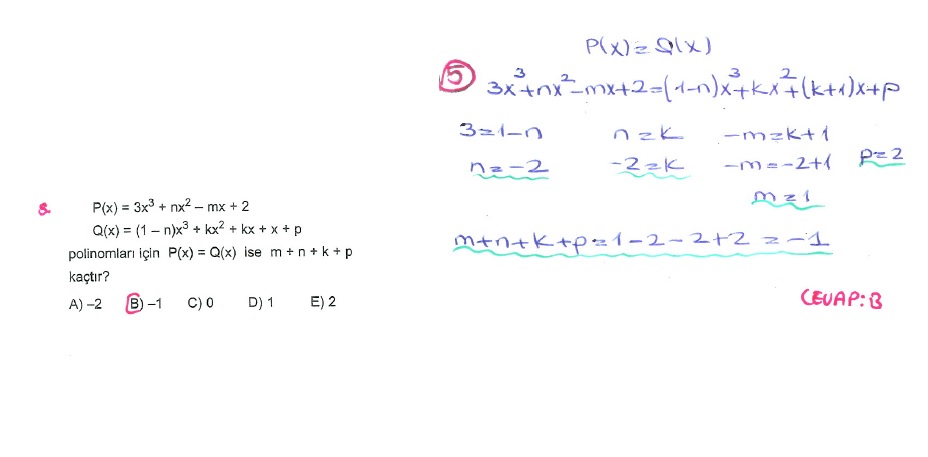 8. P(x) = 3x³ + nx² – mx + 2
Q(x) = (1 – n)x³ + kx² + kx + x + p
polinomları için P(x) = Q(x) ise m + n + k + p
kaçtır?
A) –2 B) –1 C) 0 D) 1 E) 2
P(x) = Q(x)
5 3x³+nx²-mx+2=(1-n)x³+kx²+(k+1)x+p
3=1-n n=k -m=k+1
n=-2 -2=k -m=-2+1 p=2
m=1
m+n+k+p=1-2-2+2=-1
CEVAP: B